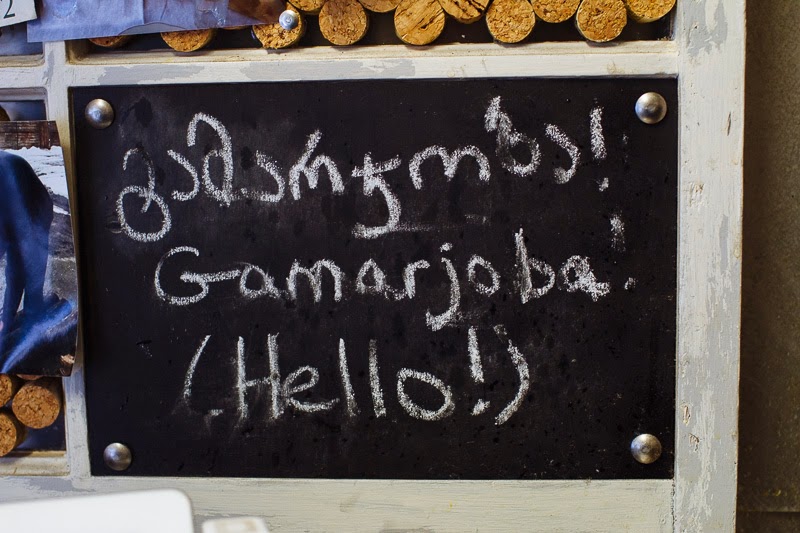 2
გამარჯობა!
Gamarjoba.
(Hello!)